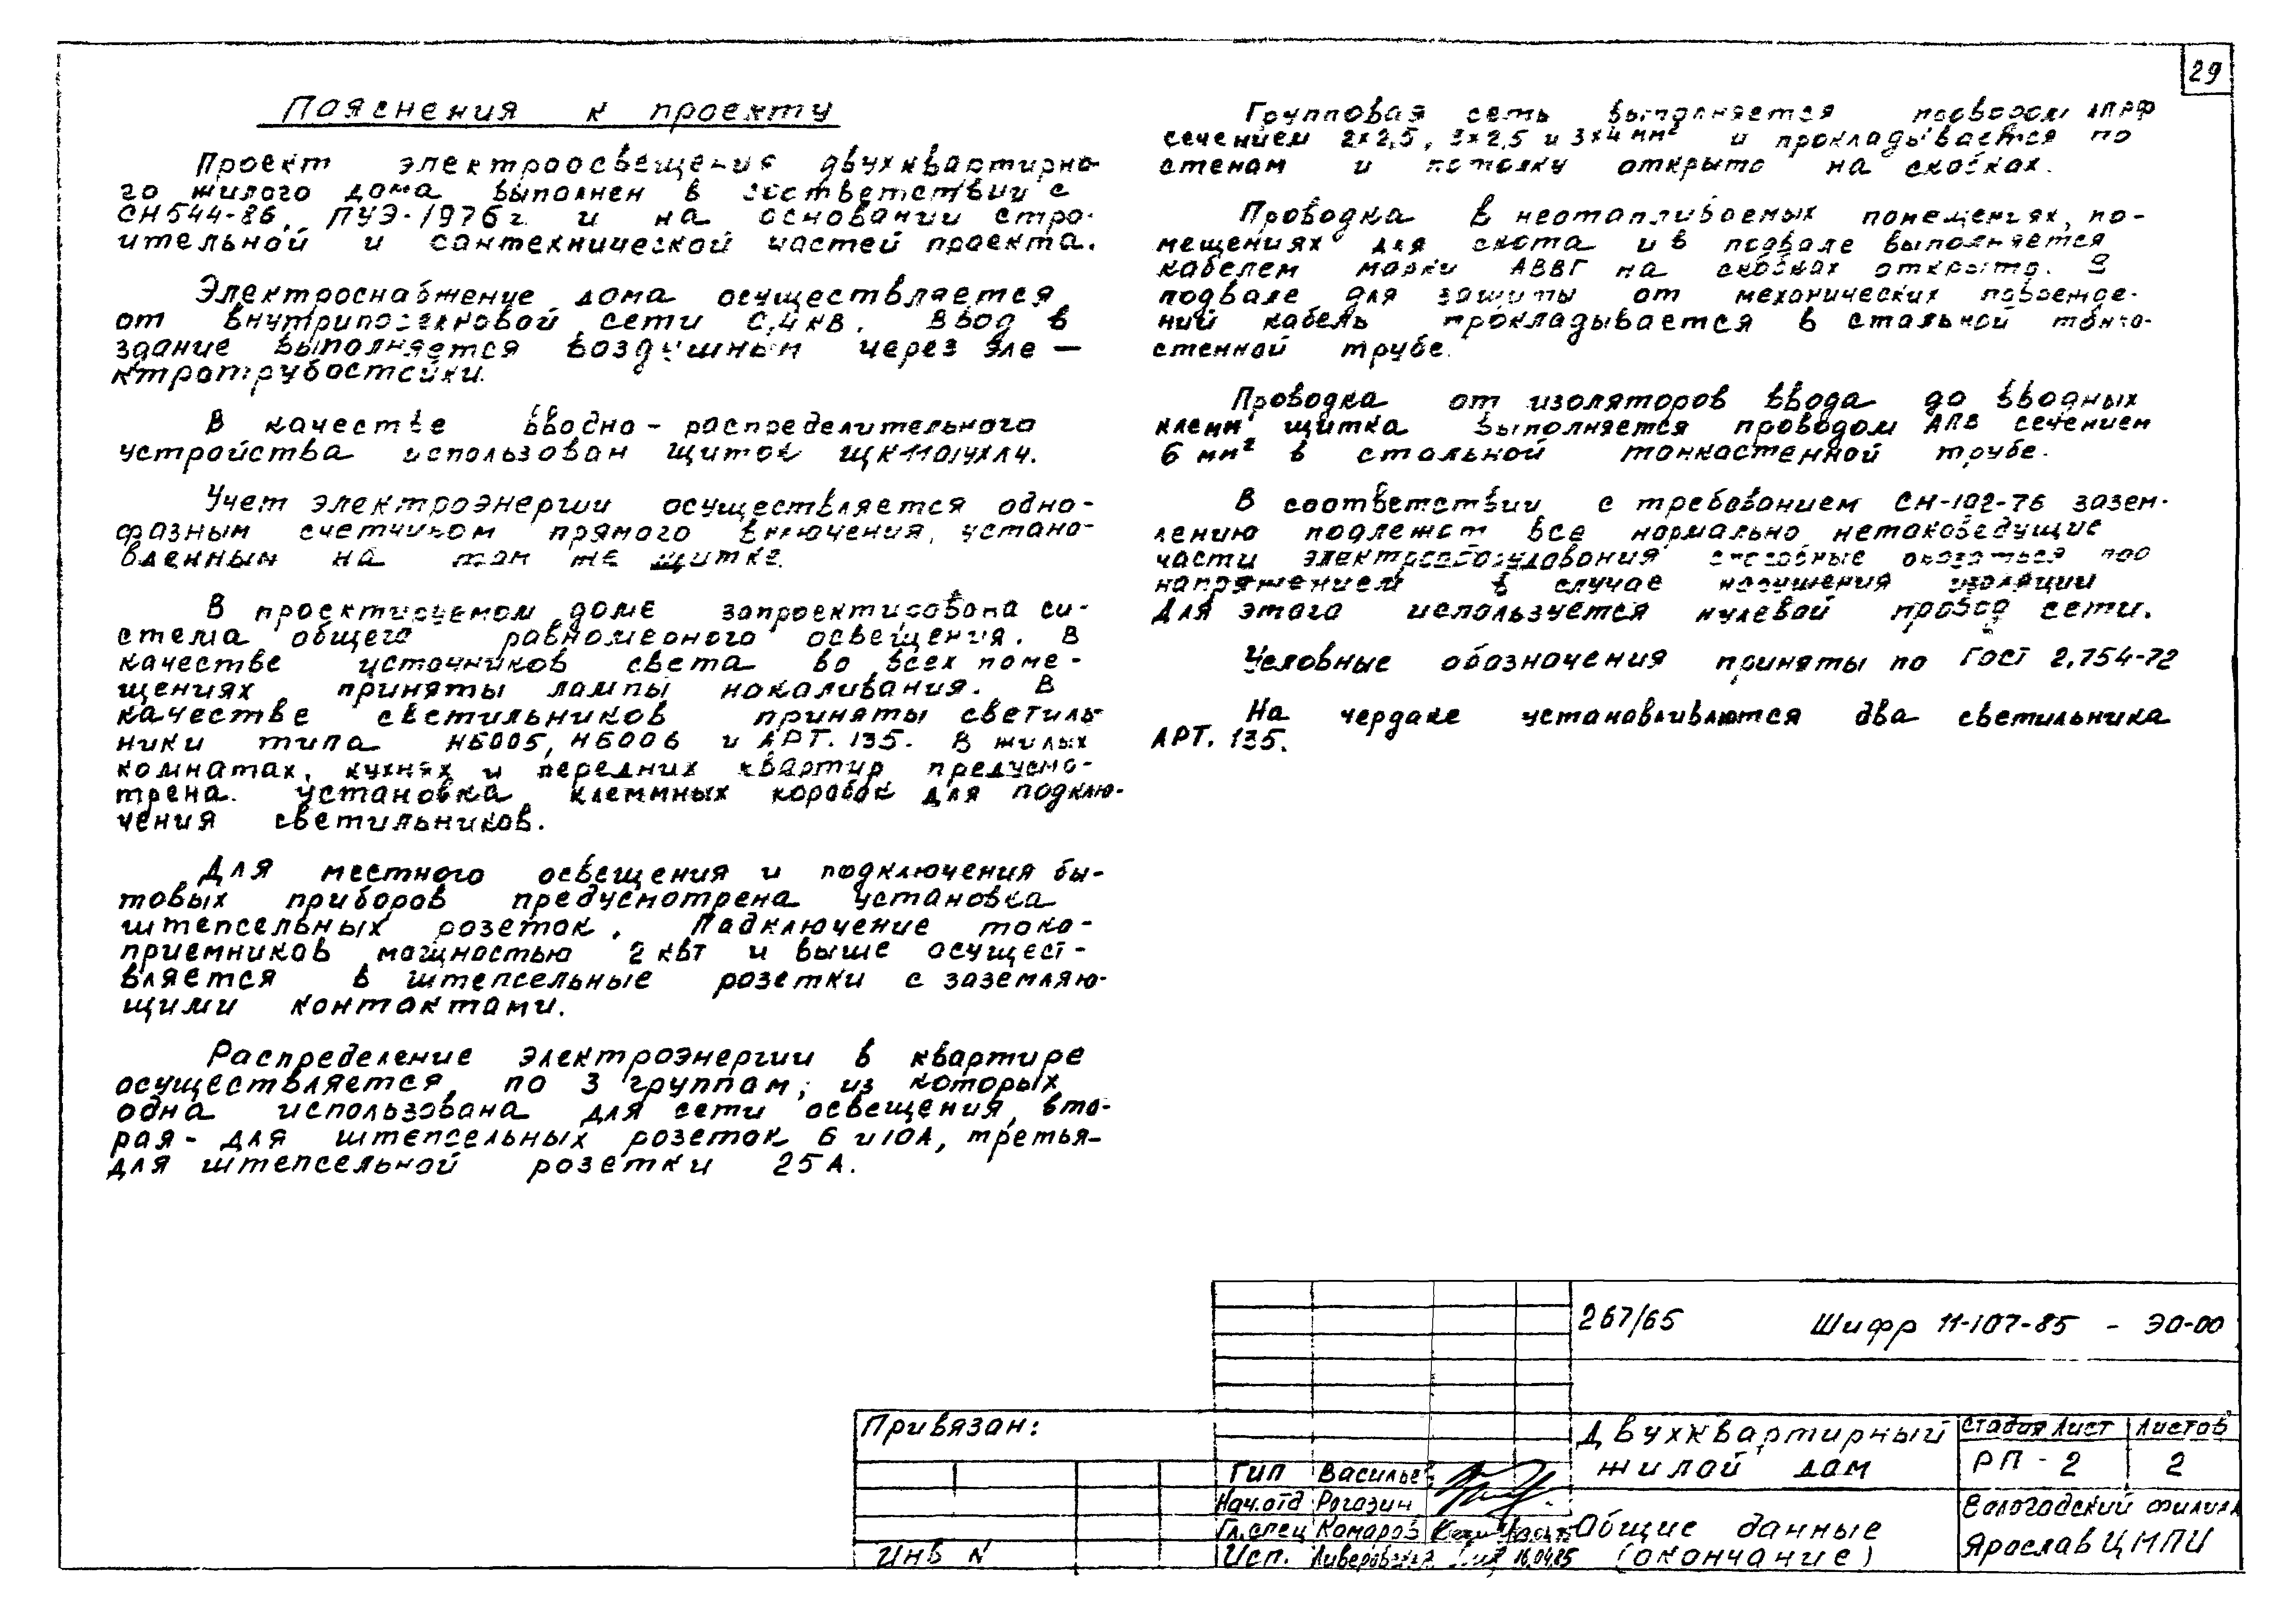 29
Пояснения к проекту
Проект электроосвещения двухквартирно-
го жилого дома выполнен в соответствии с
СН 544-86, ПУЭ-1976г. и на основании стро-
ительной и сантехнической частей проекта.
Электроснабжение дома осуществляется
от внутрипоселковой сети 0,4 кв. Ввод в
здание выполняется воздушным через эле-
ктротрубостойки.
В качестве вводно-распределительного
устройства использован щиток
Учет электроэнергии осуществляется одно-
фазным счетчиком прямого включения, устано-
вленным на том же щитке.
В проектируемом доме запроектирована си-
стема общего равномерного освещения. В
качестве источников света во всех поме-
щениях приняты лампы накаливания. В
качестве светильников приняты светиль-
ники типа НБ005, НБ006 и АРТ. 135. В жилых
комнатах, кухнях и передних квартир предусмо-
трена установка клеммных коробок для подклю-
чения светильников.
Для местного освещения и подключения бы-
товых приборов предусмотрена установка
штепсельных розеток. Подключение токо-
приемников мощностью 2 квт и выше осущест-
вляется в штепсельные розетки с заземляю-
щими контактами.
Распределение электроэнергии в квартире
осуществляется по 3 группам; из которых
одна использована для сети освещения, вто-
рая - для штепсельных розеток 6 и 10А, третья-
для штепсельной розетки 25А.
Групповая сеть выполняется проводом АПРФ
сечением 2х2,5, 3х2,5 и 3х4 мм² и прокладывается по
стенам и потолку открыто на скобках.
Проводка в неотапливаемых помещениях, по-
мещениях для скота и в подвале выполняется
кабелем марки АВВГ на скобках открыто. В
подвале для защиты от механических повреждe-
ний кабель прокладывается в стальной тонко-
стенной трубе.
Проводка от изоляторов ввода до вводных
клемм щитка выполняется проводом АПВ сечением
6 мм² в стальной тонкостенной трубе.
В соответствии с требованием СН-102-76 зазем-
лению подлежат все нормально нетоковедущие
части электрооборудования способные оказаться под
напряжением в случае нарушения изоляции
Для этого используется нулевой провод сети.
Условные обозначения приняты по Гост 2.754-72
На чердаке устанавливаются два светильника
АРТ. 135.
267/65 Шифр 11-107-85 - ЭО-00
Привязан:
Инв N
Гип Василье
Нач.отд Рогозин
Гл.спец Комаров
Исп. 16.04.85
Двухквартирный
жилой дом
Общие данные
(окончание)
Стадия Лист Листов
РП - 2 2
Вологодский филиал
Ярослав ЦНПИ